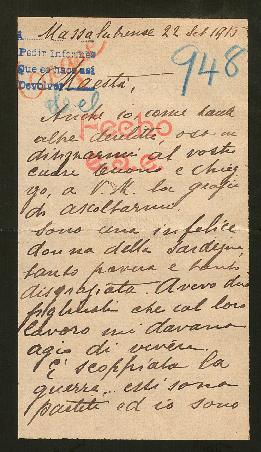 Massalubrense 22 Set 1915
A
Pedir Informes
Que es hoc así
Devolver
948
Maestà,
Anch'io come tante
altre derelitte, oso
al vostro
cuore buono e chieg-
go, a V. M. la grazia
di ascoltarmi.
Sono una infelice
donna della Sardegna,
tanto povera e tanto
disgraziata. Avevo due
figliuoli che col loro
lavoro mi davano
agio di vivere.
È scoppiata la
guerra... essi sono
partiti ed io sono
Hecho